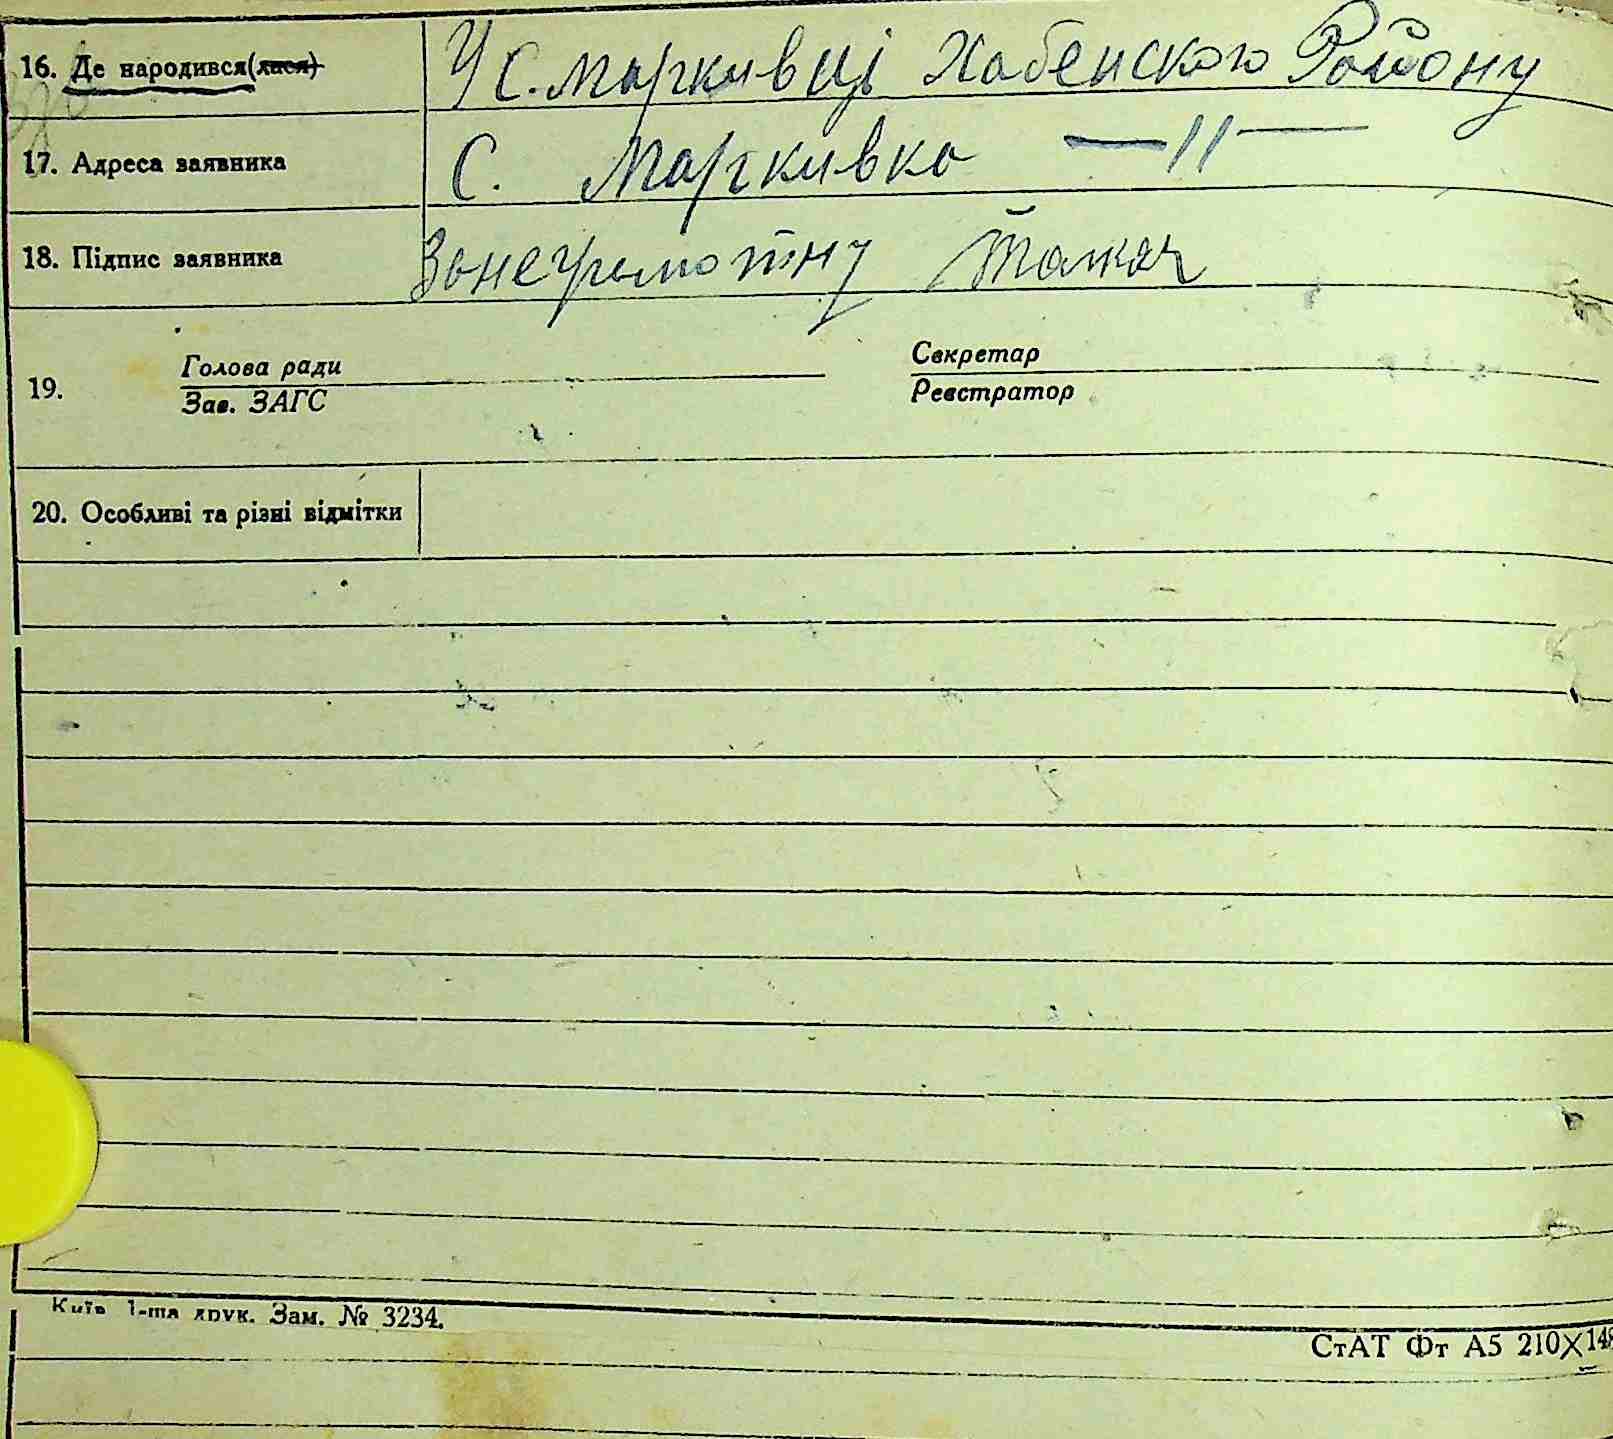 16. Де народився(лася) У с. Маркивці Хабенского Району
17. Адреса заявника С. Маркивка —//—
18. Підпис заявника Занеграмотну
19. Голова ради Секретар
Зав. ЗАГС Реєстратор
20. Особливі та різні відмітки
Київ 1-ша друк. Зам. № 3234.
СтАТ Фт А5 210×148